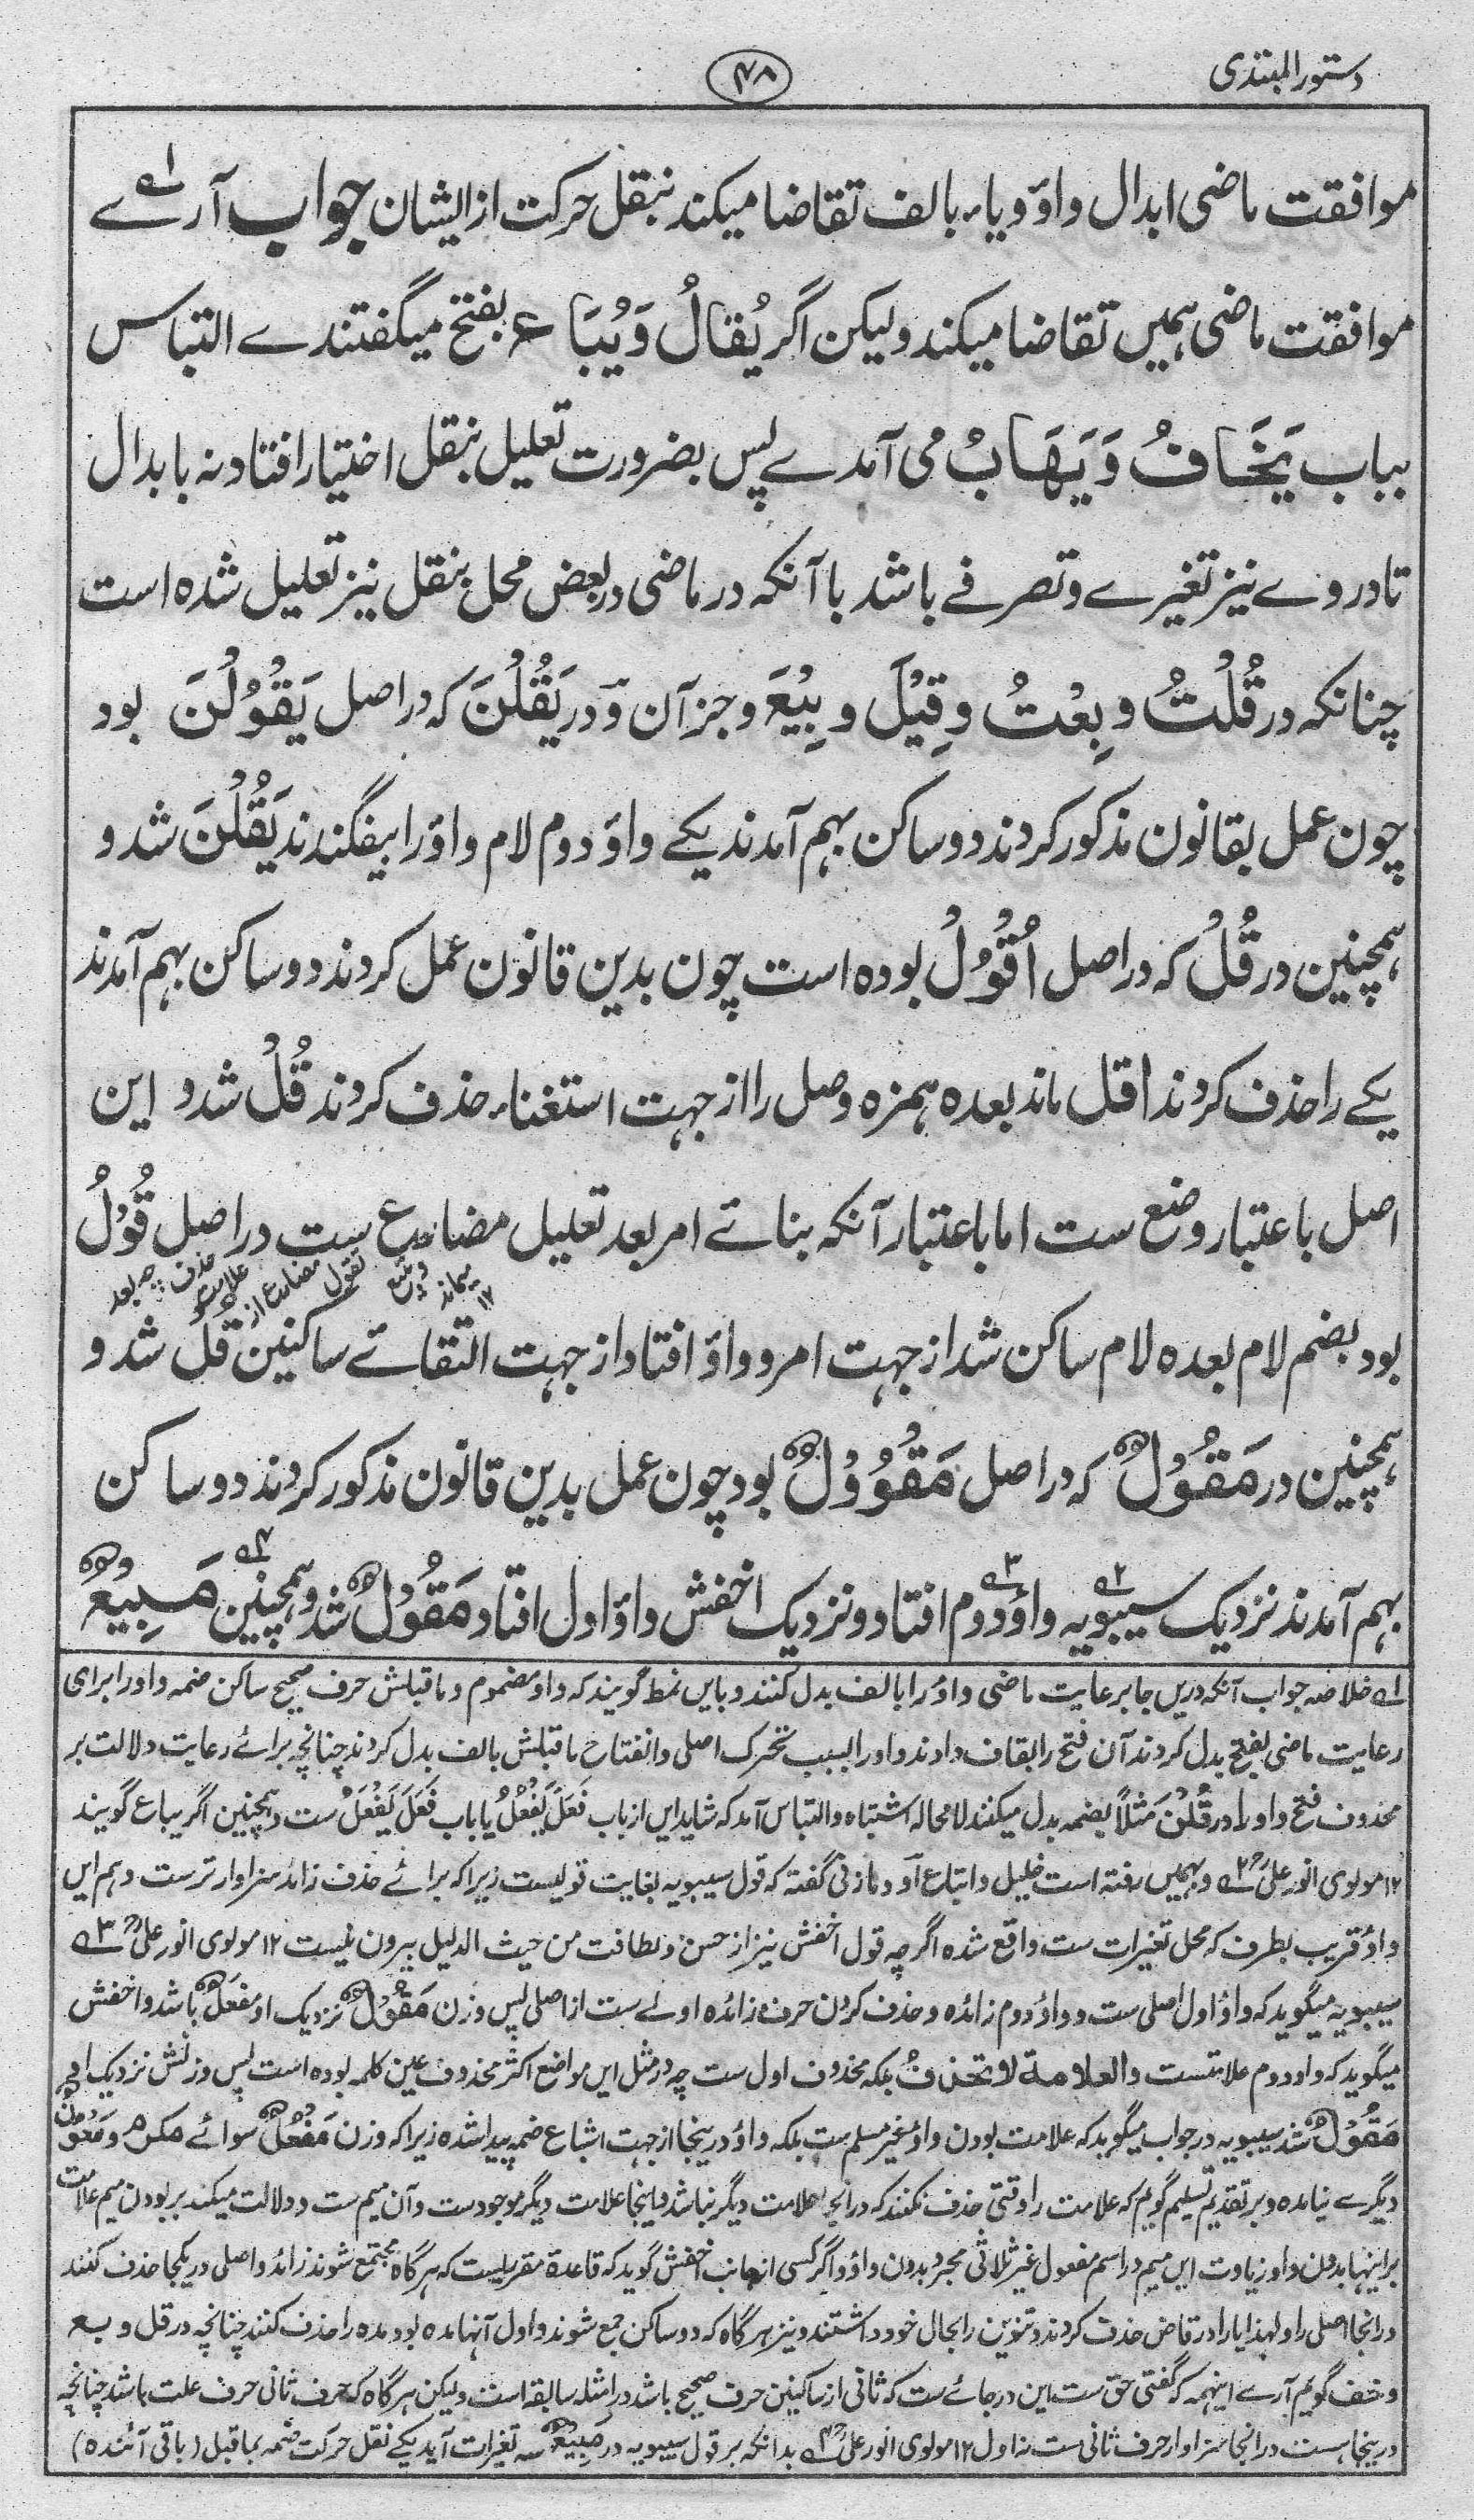 دستور المبتدی
۴۸
موافقت ماضی ابدال واؤ و یاء بالف تقاضا میکند نبقل حرکت از ایشان جواب آرے ۱ے
موافقت ماضی ہمیں تقاضا میکند و لیکن اگر یُقَالُ وَ یُبَاعُ بفتح میگفتندے التباس
بباب یَخَافُ وَ یَهَابُ می آمدے پس بضرورت تعلیل بنقل اختیار افتاد نہ بابدال
تا در وے نیز تغیرے و تصرفے باشد با آنکہ در ماضی در بعض محل بنقل نیز تعلیل شدہ است
چنانکہ در قُلْتُ و بِعْتُ و قِیْلَ و بِیْعَ و جز آن و در یَقُلْنَ کہ در اصل یَقْوُلْنَ بود
چون عمل بقانون مذکور کردند دو ساکن بہم آمدند یکے واؤ دوم لام واؤ را بیفگندند یَقُلْنَ شد و
ہمچنین در قُلْ کہ در اصل اُقْوُلْ بودہ است چون بدین قانون عمل کردند دو ساکن بہم آمدند
یکے را حذف کردند اقل ماند بعدہ ہمزہ وصل را از جہت استغناء حذف کردند قُلْ شد و این
اصل باعتبار وضع ست اما باعتبار آنکہ بنائے امر بعد تعلیل مضارع ست در اصل قُوْلُ
چہ بعد حذف علامت مضارع از تقول میماند ۱۲
بود بضم لام بعدہ لام ساکن شد از جہت امر و واؤ افتاد از جہت التقائے ساکنین قل شد و
ہمچنین در مَقُوْلٌ کہ در اصل مَقْوُوْلٌ بود چون عمل بدین قانون مذکور کردند دو ساکن
بہم آمدند نزدیک سیبویہ ۲ے واؤ دوم ۳ے افتاد و نزدیک اخفش واؤ اول افتاد مَقُوْلٌ شد و ہمچنین ۴ے مَبِیْعٌ
۱ے خلاصہ جواب آنکہ دریں جا بر عایت ماضی واؤ را بالف بدل کنند و بایں نمط گویند کہ واو مضموم و ماقبلش حرف صحیح ساکن ضمہ واو را برای
رعایت ماضی بفتح بدل کردند آن فتح را بقاف دادند و او را بسبب تحرک اصلی و انفتاح ماقبلش بالف بدل کردند چنانچہ برائے رعایت دلالت بر
محذوف فتح واو را در قُلْنَ مثلاً بضمہ بدل میکنند لا محالہ اشتباہ و التباس آمد کہ شاید این از باب فَعَلَ یَفْعُلُ یا باب فَعَلَ یَفْعَلُ ست و ہمچنین اگر یباع گویند
۱۲ مولوی انور علی ۲ے و بہمیں رفتہ است خلیل و اتباع او و مازنی گفتہ کہ قول سیبویہ بغایت قویست زیرا کہ برائے حذف زائد سزاوار ترست و ہم این
واؤ قریب بطرف کہ محل تغیرات ست واقع شدہ اگرچہ قول اخفش نیز از حسن و لطافت من حیث الدلیل بیرون نیست ۱۲ مولوی انور علی ۳ے
سیبویہ میگوید کہ واؤ اول اصلی ست و واؤ دوم زائدہ و حذف کردن حرف زائدہ اولے ست از اصلی پس وزن مَقُوْلٌ نزدیک او مَفُعْلٌ باشد و اخفش
میگوید کہ واو دوم علامتست والعلامة لا تحذف بلکہ محذوف اول ست چہ در مثل این مواضع اکثر محذوف عین کلمہ بودہ است پس وزنش نزدیک او
مَفُوْلٌ شد سیبویہ در جواب میگوید کہ علامت بودن واؤ غیر مسلم ست بلکہ واؤ در ینجا از جہت اشباع ضمہ پیدا شدہ زیرا کہ وزن مَفْعُلٌ سوائے مکرم و مَعُوْنٌ
دیگرے نیامدہ و بر تقدیر تسلیم گویم کہ علامت را وقتی حذف نکنند کہ در انجا علامت دیگر نباشد و اینجا علامت دیگر موجودست و آن میم ست و دلالت میکند بر بودن میم علامت
براینہا بدون واو زیادت این میم در اسم مفعول غیر ثلاثی مجرد بدون واؤ و اگر کسی از جانب اخفش گوید کہ قاعدہ مقررہ است کہ ہر گاہ مجتمع شوند زائد و اصلی در یکجا حذف کنند
در انجا اصلی را و لہذا یا را در قاض حذف کردند و تنوین را بحال خود داشتند و نیز ہر گاہ کہ دو ساکن جمع شوند و اول آنہا مدہ بود مدہ را حذف کنند چنانچہ در قل و بع
و خف گویم آرے اینہمہ کہ گفتی حق ست این در جائے ست کہ ثانی از ساکنین حرف صحیح باشد در امثلہ سابقہ است و لیکن ہر گاہ کہ حرف ثانی حرف علت باشد چنانچہ
در ینجا ہست در انجا سزاوار حرف ثانی ست نہ اول ۱۲ مولوی انور علی ۴ے بدانکہ بر قول سیبویہ در مَبِیْعٌ سہ تغیرات آید یکے نقل حرکت ضمہ بماقبل (باقی آئندہ)